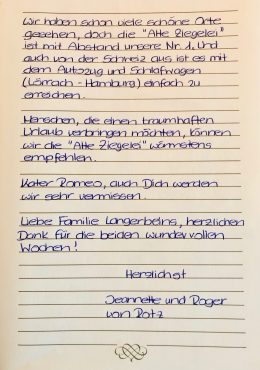 Wir haben schon viele schöne Orte
gesehen, doch die "Alte Ziegelei"
ist mit Abstand unsere Nr. 1. Und
auch von der Schweiz aus ist es mit
dem Autozug und Schlafwagen
(Lörrach - Hamburg) einfach zu
erreichen.
Menschen, die einen traumhaften
Urlaub verbringen möchten, können
wir die "Alte Ziegelei" wärmstens
empfehlen.
Kater Romeo, auch Dich werden
wir sehr vermissen.
Liebe Familie Langerbeins, herzlichen
Dank für die beiden wundervollen
Wochen!
Herzlichst
Jeannette und Roger
von Rotz